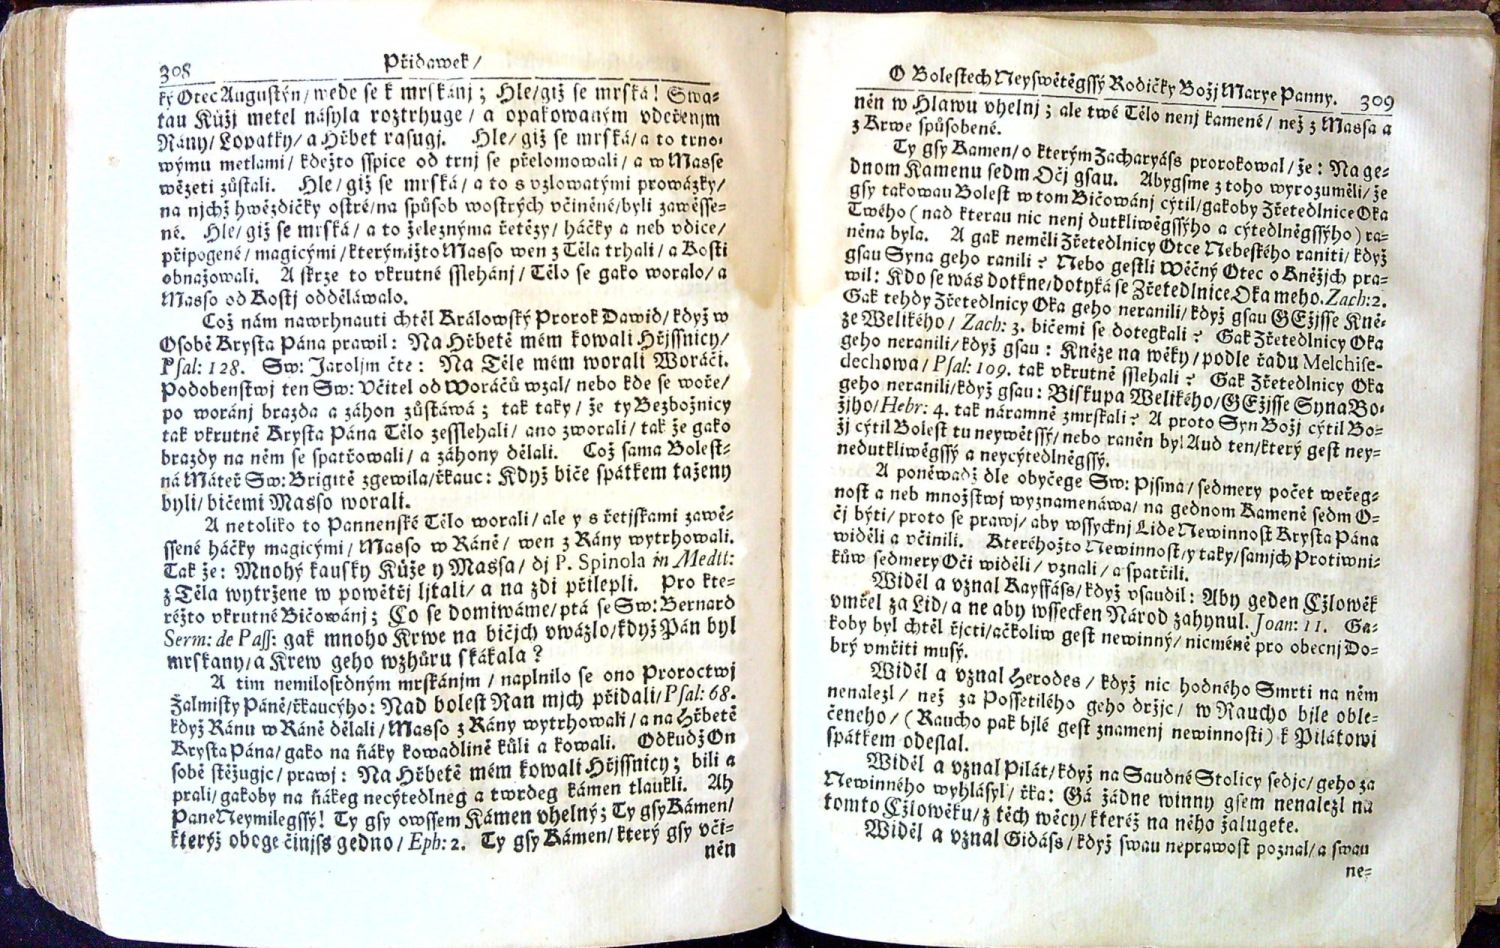 308
Přidawek/
ký Otec Augustýn/wede se k mrskánj; Hle/giž se mrská! Swa-
tau Kůži metel násyla roztrhuge/ a opakowaným vdeřenjm
Rány/Lopatky/a Hřbet rasugj. Hle/giž se mrská/a to trno-
wýmu metlami/kdežto sspice od trnj se přelomowali/a w Masse
wězeti zůstali. Hle/giž se mrská/a to s vzlowatými prowázky/
na njchž hwězdičky ostré/na spůsob wostrých včiněné/byli zawësse-
né. Hle/giž se mrská/a to železnýma řetězy/háčky a neb vdice/
připogené/magicými/kterýmižto Masso wen z Těla trhali/a Kosti
obnažowali. A skrze to vkrutné sslehánj/Tělo se gako woralo/a
Masso od Kostj oddělávalo.
Což nám nawrhnauti chtěl Králowský Prorok Dawid/když w
Osobě Krysta Pána prawil: Na Hřbetě mém kowali Hřjssnicy/
Psal: 128. Sw: Jaroljm čte: Na Těle mém worali Woráči.
Podobenstwj ten Sw: Včitel od Woráčů wzal/nebo kde se woře/
po woránj brazda a záhon zůstáwá; tak taky/že ty Bezbožnicy
tak vkrutně Krysta Pána Tělo zesslehali/ano zworali/tak že gako
brazdy na něm se spatřowali/a záhony dělali. Což sama Bolest-
ná Máteř Sw: Brigitě zgewila/řkauc: Když biče spátkem taženy
byli/bičemi Masso worali.
A netoliko to Pannenské Tělo worali/ale y s řetjskami zawě-
ssené háčky magicými/Masso w Ráně/wen z Rány wytrhowali.
Tak že: Mnohý kausky Kůže y Massa/dj P. Spinola in Medit:
z Těla wytržene w powětřj ljtali/a na zdi přilepli. Pro kte-
réžto vkrutné Bičowánj; Co se domiwáme/ptá se Sw: Bernard
Serm: de Pass: gak mnoho Krwe na bičjch vwázlo/když Pán byl
mrskany/a Krew geho wzhůru skákala?
A tim nemilosrdným mrskánjm/naplnilo se ono Proroctwj
Žalmisty Páně/řkaucýho: Nad bolest Ran mjch přidali/Psal: 68.
když Ránu w Ráně dělali/Masso z Rány wytrhowali/a na Hřbetě
Krysta Pána/gako na ňáky kowadlině kůli a kowali. Odkudž On
sobě stěžugjc/prawj: Na Hřbetě mém kowali Hřjssnicy; bili a
prali/gakoby na ňákeg necýtedlneg a twrdeg kámen tlaukli. Ah
Pane Neymilegssý! Ty gsy owssem Kámen vhelný; Ty gsy Kámen/
kterýž oboge činjss gedno/Eph: 2. Ty gsy Kámen/který gsy vči-
něn
O Bolestech Neyswětěgssý Rodičky Božj Marye Panny. 309
něn w Hlawu vhelnj; ale twé Tělo nenj kamené/než z Massa a
z Krwe spůsobené.
Ty gsy Kamen/o kterým Zacharyáss prorokowal/že: Na ge-
dnom Kamenu sedm Očj gsau. Abygsme z toho wyrozuměli/že
gsy takowau Bolest w tom Bičowánj cýtil/gakoby Zřetedlnice Oka
Twého (nad kterau nic nenj dutkliwěgssýho a cýtedlněgssýho) ra-
něna byla. A gak neměli Zřetedlnicy Otce Nebeského raniti/když
gsau Syna geho ranili? Nebo gestli Wěčný Otec o Kněžjch pra-
wil: Kdo se wás dotkne/dotyká se Zřetedlnice Oka meho. Zach: 2.
Gak tehdy Zřetedlnicy Oka geho neranili/když gsau GEžjsse Kně-
že Welikého/ Zach: 3. bičemi se dotegkali? Gak Zřetedlnicy Oka
geho neranili/když gsau: Kněze na wěky/podle řadu Melchise-
dechowa/ Psal: 109. tak vkrutně sslehali? Gak Zřetedlnicy Oka
geho neranili/když gsau: Biskupa Welikého/GEžjsse Syna Bo-
žjho/Hebr: 4. tak náramně zmrskali? A proto Syn Božj cýtil Bo-
žj cýtil Bolest tu neywětssý/nebo raněn byl Aud ten/který gest ney-
nedutkliwěgssý a neycýtedlněgssý.
A poněwadž dle obyčege Sw: Pjsma/sedmery počet weřeg-
nost a neb množstwj wyznamenáwa/na gednom Kameně sedm O-
čj býti/proto se prawj/aby wssyckni Lide Newinnost Krysta Pána
widěli a včinili. Kteréhožto Newinnost/y taky/samjch Protiwni-
kůw sedmery Oči widěli/vznali/a spatřili.
Widěl a vznal Kayffáss/když vsaudil: Aby geden Čžlowěk
vmřel za Lid/a ne aby wssecken Národ zahynul. Joan: 11. Ga-
koby byl chtěl řjcti/ačkoliw gest newinný/nicméně pro obecnj Do-
brý vmřiti musý.
Widěl a vznal Herodes/když nic hodného Smrti na něm
nenalezl/než za Possetilého geho držjc/w Raucho bjle oble-
čeneho/(Raucho pak bjlé gest znamenj newinnosti) k Pilátowi
spátkem odeslal.
Widěl a vznal Pilát/když na Saudné Stolicy sedjc/geho za
Newinného wyhlásyl/řka: Gá žádne winny gsem nenalezl na
tomto Čžlowěku/z těch wěcy/kteréž na něho žalugete.
Widěl a vznal Gidáss/když swau neprawost poznal/a swau
ne-